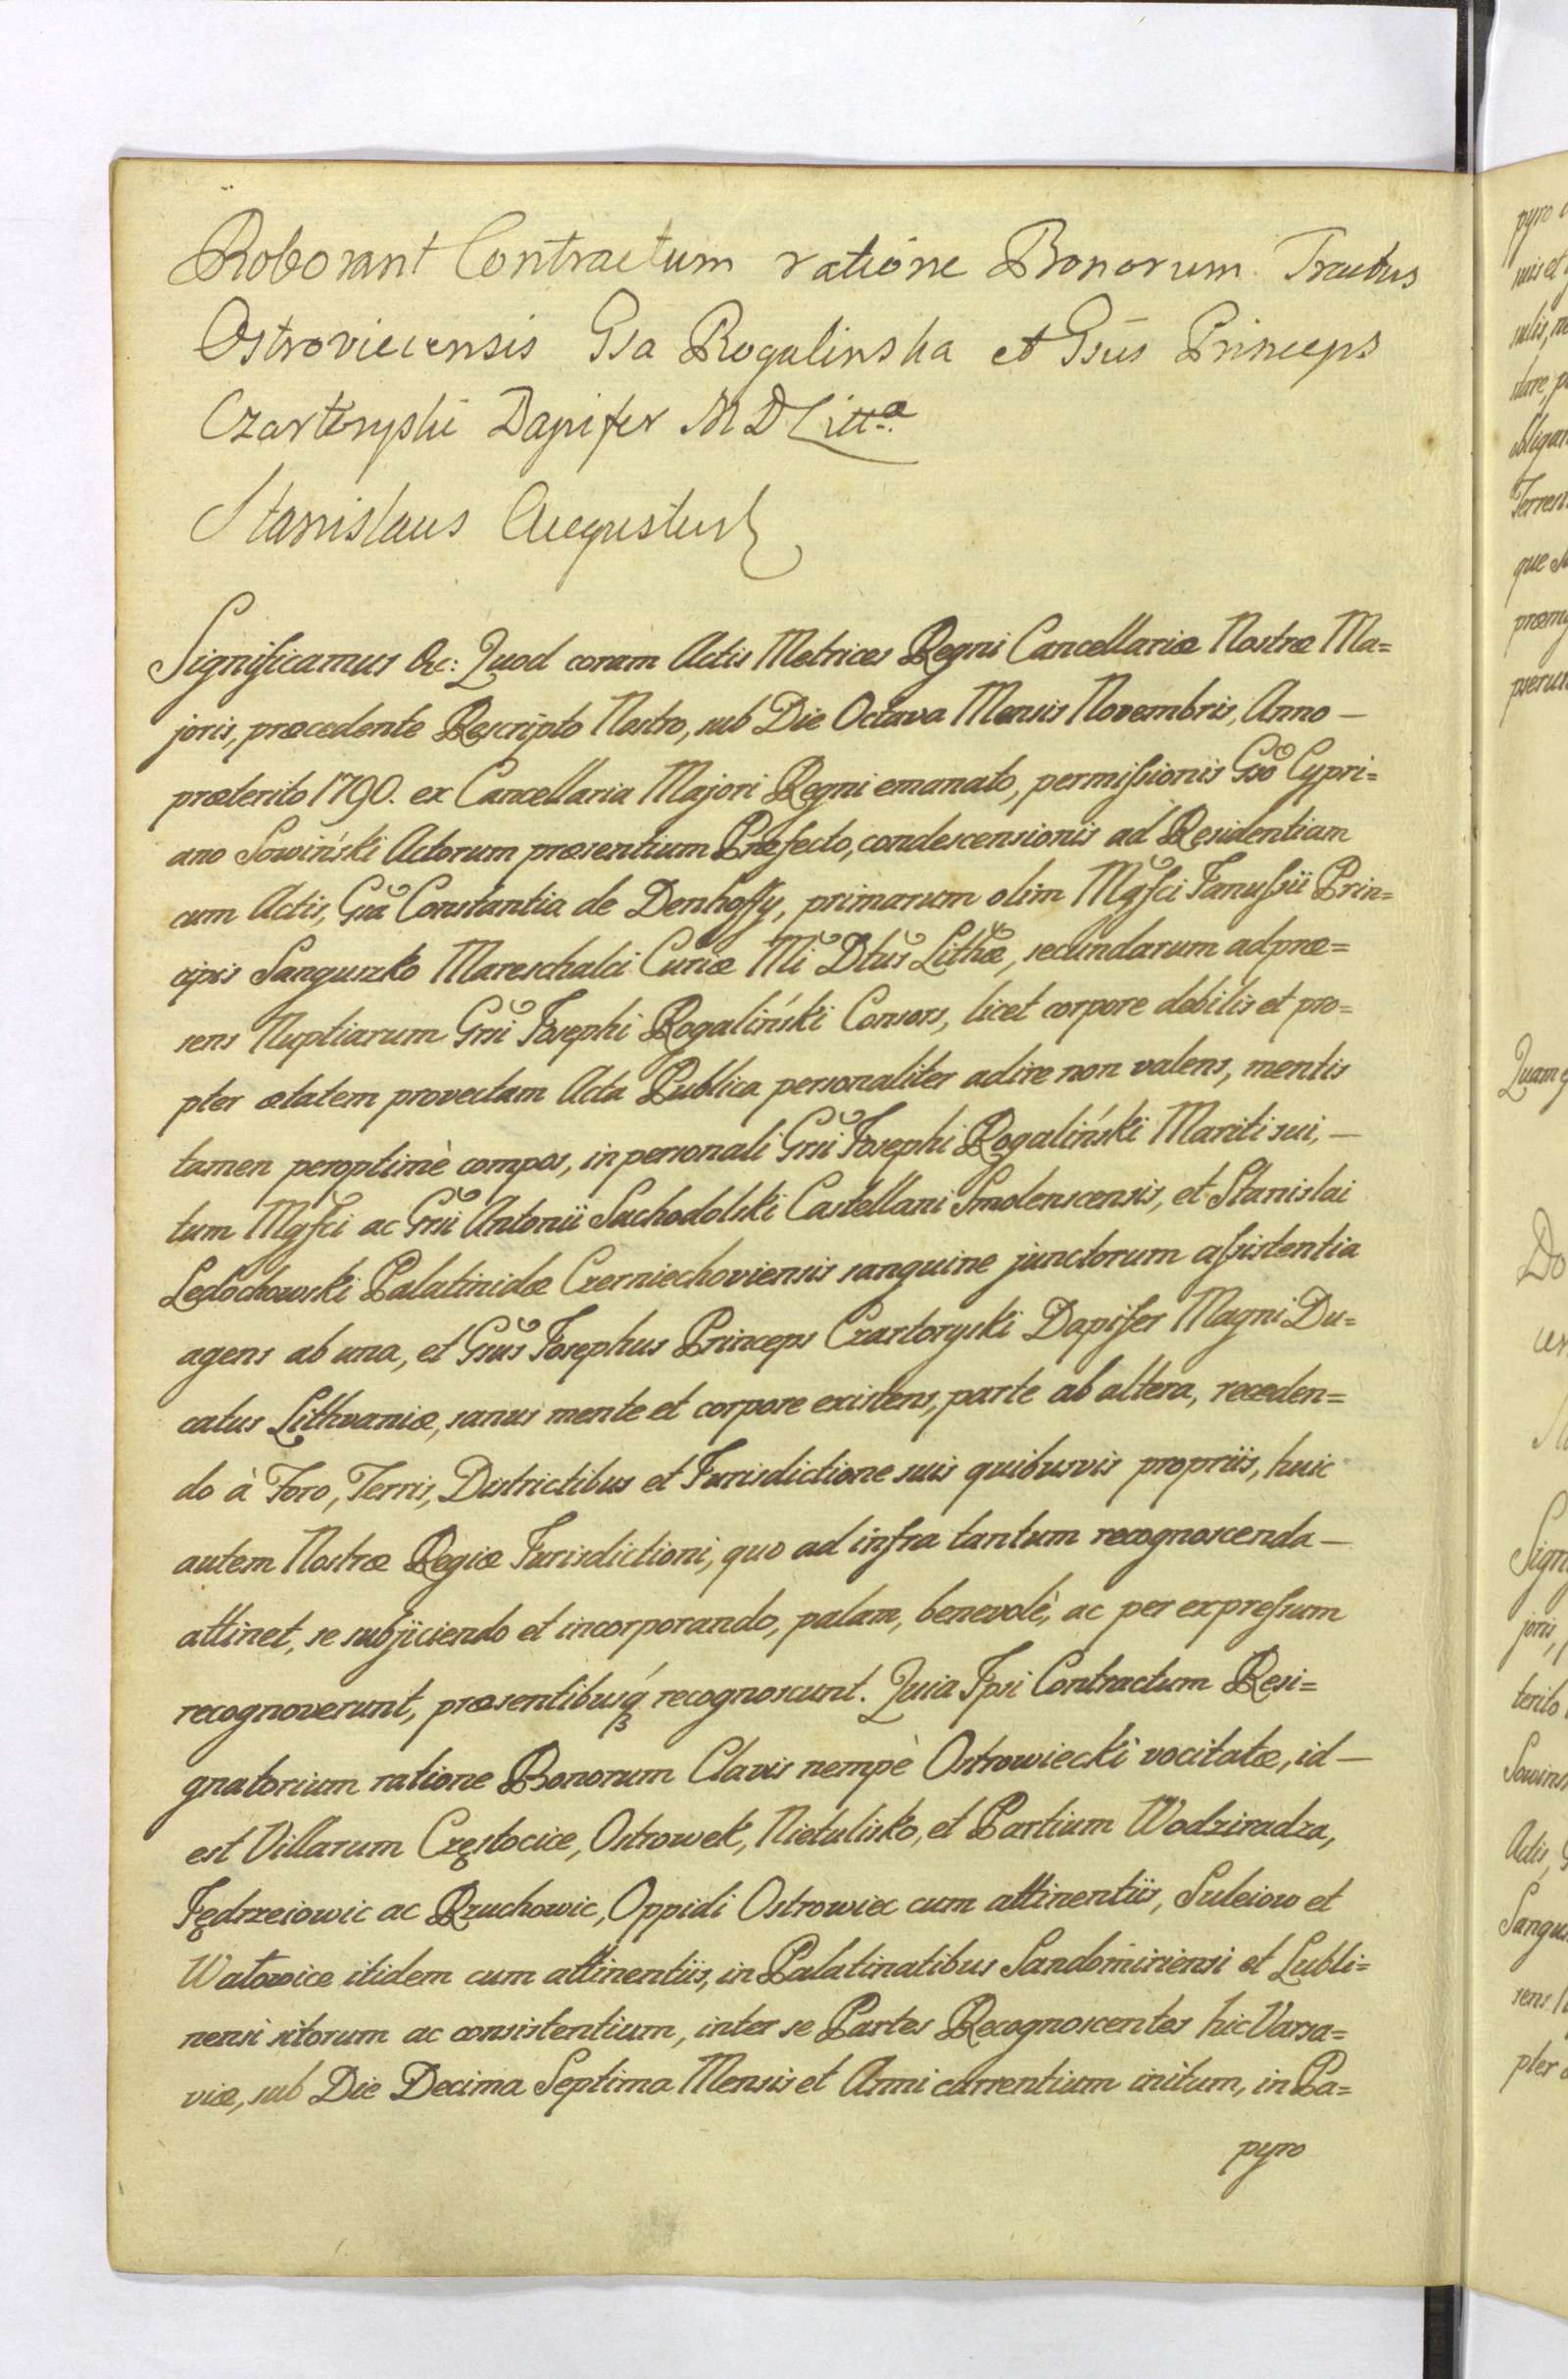 Roborant Contractum ratione Bonorum Tractus
Ostroviecensis Gsa Rogalinska et Gsus Princeps
Czartoryski Dapifer M D Litt.æ
Stanislaus Augustus
Significamus &c: Quod coram Actis Metrices Regni Cancellariæ Nostræ Ma=
joris, præcedente Rescripto Nostro, sub Die Octava Mensis Novembris, Anno —
præterito 1790. ex Cancellaria Majori Regni emanato, permissionis Gso Cypri=
ano Sowiński Actorum præsentium Præfecto, condescensionis ad Residentiam
cum Actis, Gsa Constantia de Denhoffy, primarum olim Mgfci Janussii Prin=
cipis Sanguszko Mareschalci Curiæ Mi Dtus Lithæ, secundarum ad præ=
sens Nuptiarum Gsi Josephi Rogaliński Consors, licet corpore debilis et pro=
pter ætatem provectam Acta Publica personaliter adire non valens, mentis
tamen peroptimè compos, in personali Gsi Josephi Rogaliński Mariti sui, —
tum Mgfci ac Gsi Antonii Suchodolski Castellani Smolenscensis, et Stanislai
Ledochowski Palatinidæ Czerniechoviensis sanguine junctorum assistentia
agens ab una, et Gsus Josephus Princeps Czartoryski Dapifer Magni Du=
catus Lithvaniæ, sanus mente et corpore existens, parte ab altera, receden=
do à Foro, Terris, Districtibus et Jurisdictione suis quibusvis propriis, huic
autem Nostræ Regiæ Jurisdictioni, quo ad infra tantum recognoscenda —
attinet, se subjiciendo et incorporando, palam, benevolè, ac per expressum
recognoverunt, præsentibusq́ recognoscunt. Quia Ipsi Contractum Resi=
gnatorium ratione Bonorum Clavis nempè Ostrowiecki vocitatæ, id —
est Villarum Częstocice, Ostrowek, Nietulisko, et Partium Wodziradza,
Jędrzeiowic ac Rzuchowic, Oppidi Ostrowiec cum attinentiis, Suleiow et
Watowice itidem cum attinentiis, in Palatinatibus Sandomiriensi et Lubli=
nensi sitorum ac consistentium, inter se Partes Recognoscentes hic Varsa=
viæ, sub Die Decima Septima Mensis et Anni currentium initum, in Pa=
pyro